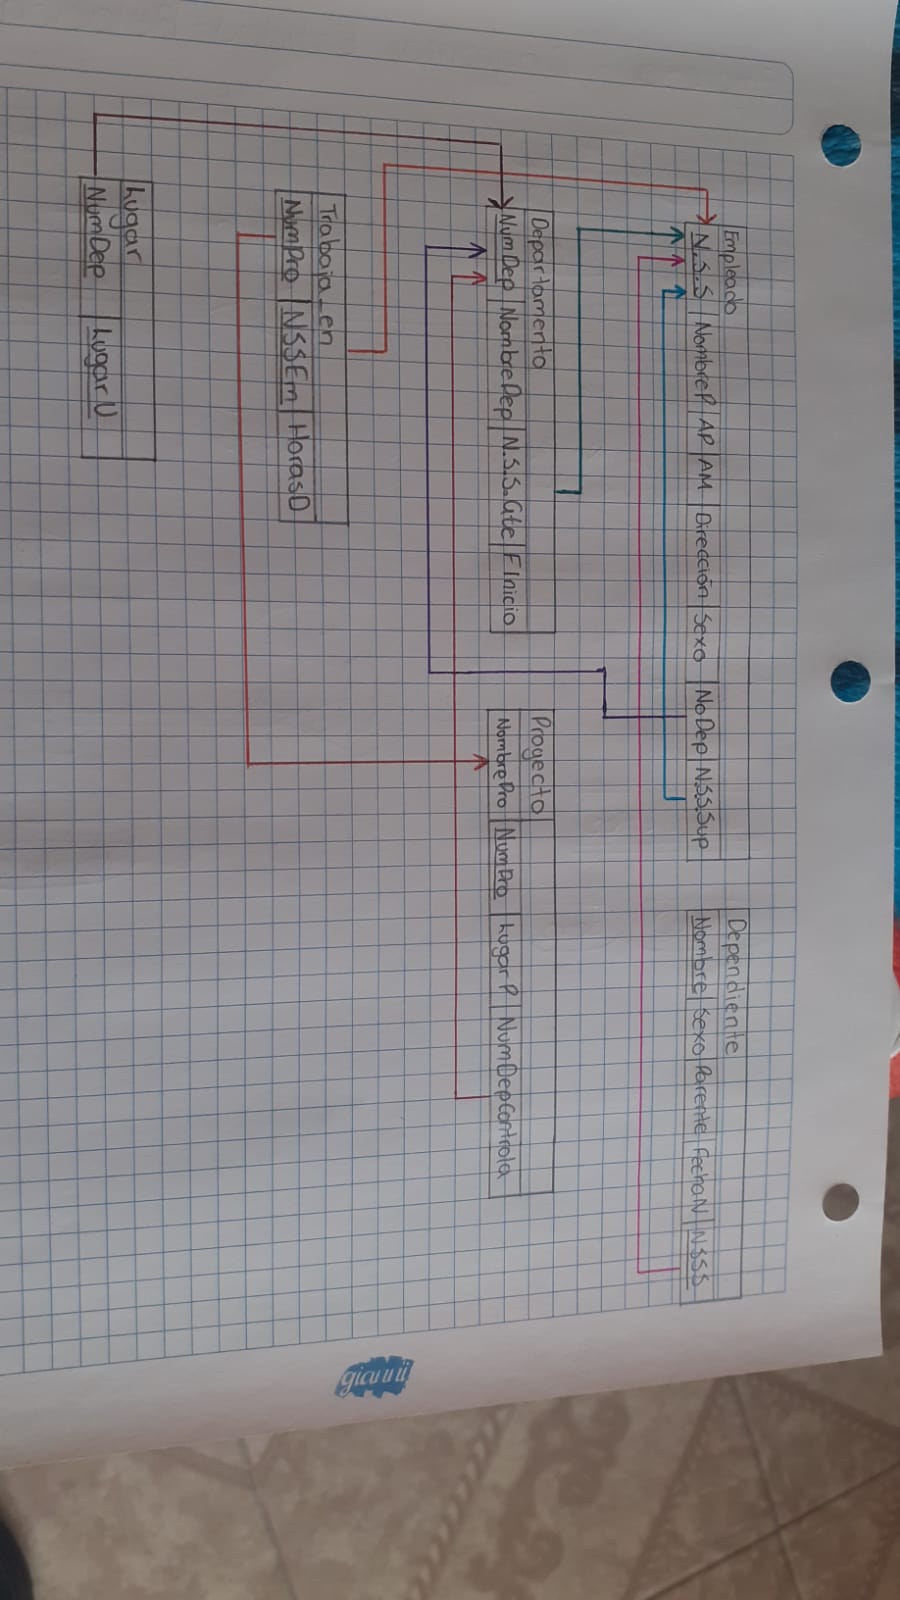 Empleado
N.S.S NombreP AP AM Dirección Sexo NoDep N.S.S.Sup
Dependiente
Nombre Sexo Parente FechaN NSSS
Departamento
NumDep NombreDep N.S.S.Gte FInicio
Proyecto
NombrePro NumPro LugarP NumDepControla
gianni
Trabaja_en
NumPro NSSEm HorasD
Lugar
NumDep LugarU